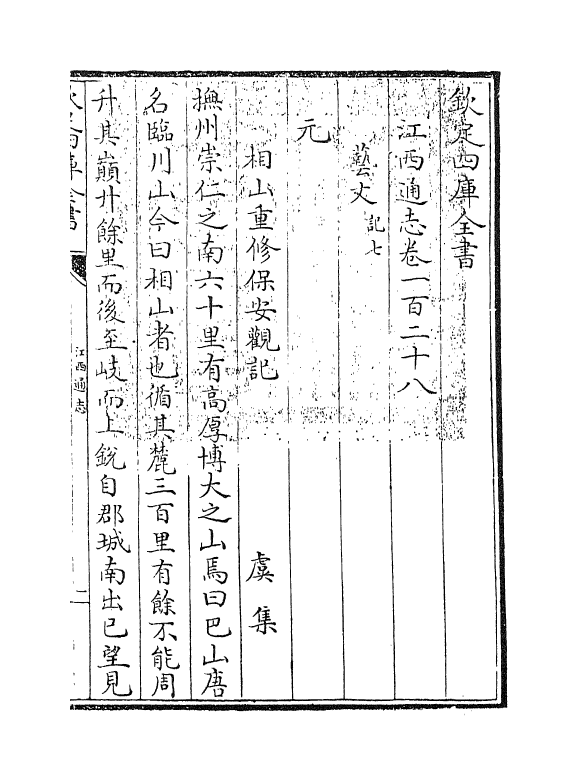 欽定四庫全書
江西通志卷一百二十八
藝文記七
元
相山重修保安觀記 虞集
撫州崇仁之南六十里有高厚博大之山焉曰巴山唐
名臨川山今曰相山者也循其麓三百里有餘不能周
升其巔廾餘里而後至岐而上銳自郡城南出已望見
江西通志
二